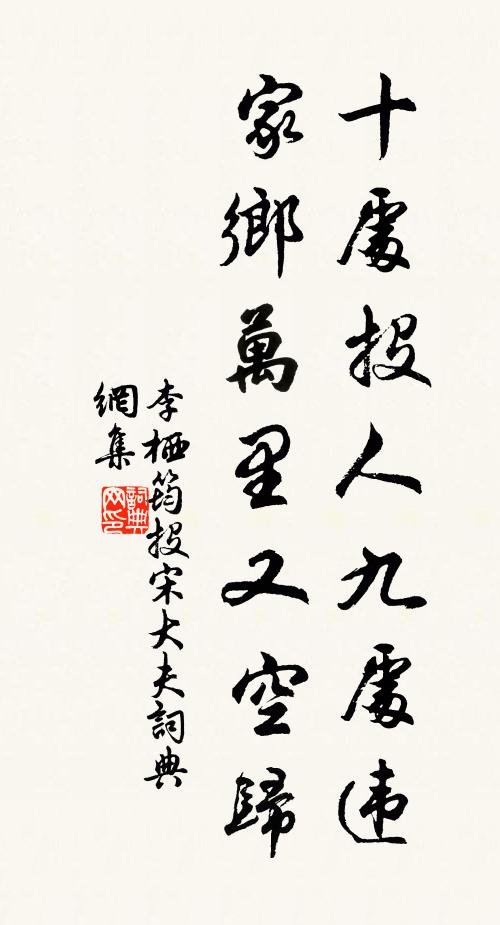 十處投人九處違
家鄉萬里又空歸
李栖筠投宋大夫詞典
網集
詞典
网印